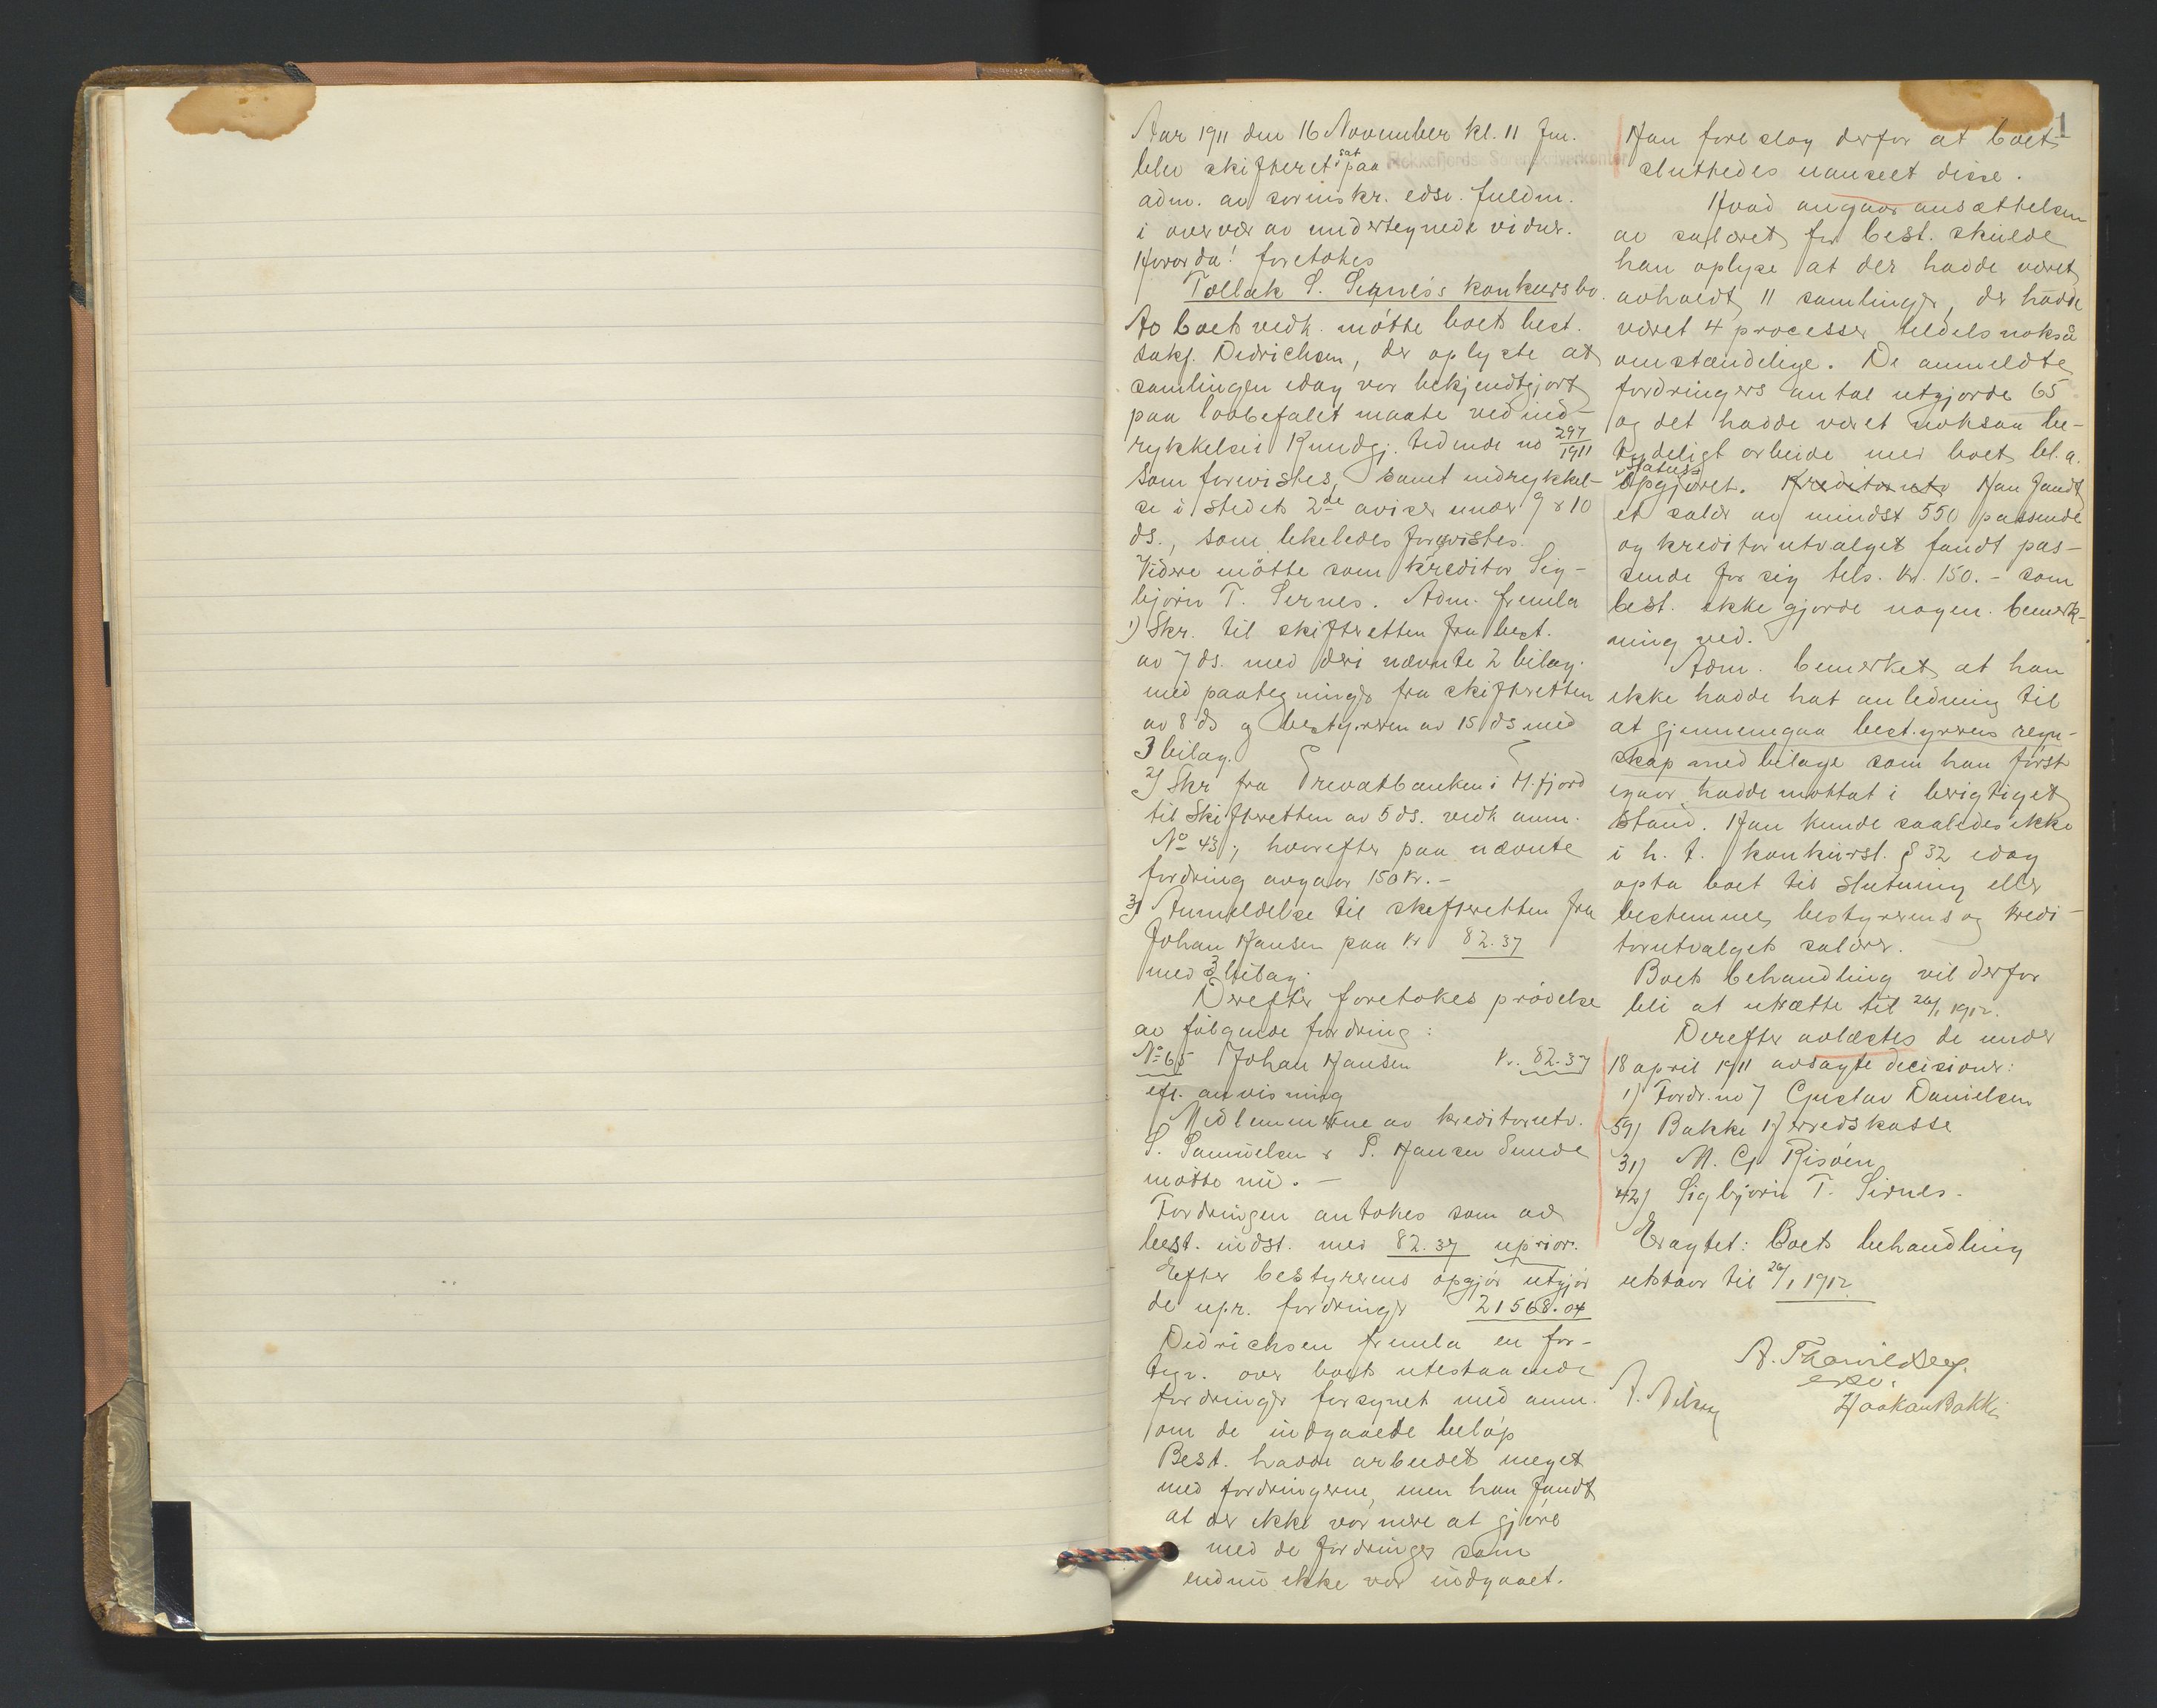 Aar 1911 den 16 November kl. 11 fm.
blev skifteret sat paa Flekkefjords Sorenskriverkontor
adm. av sorinskr. edsv. fuldm.
i overvær av undertegnede vidner.
Hvorda! foretokes
Tollak S. Segnes's konkursbo.
Av boets vedk. møtte boets best.
sakf. Didrichsen, der oplyste at
samlingen idag var bekjendtgjort
paa lovbefalet maate ved ind-
rykkelse i Kundgj. tidende no 297/1911
som forevistes, samt indrykkel-
se i stedets 2de aviser under 9 & 10
ds., som likeledes forevistes.
Videre møtte som kreditor Sig-
bjørn T. Sirnes. Adm. fremla
1) Skr. til skifteretten fra best.
av 7 ds. med deri nævnte 2 bilag.
med paategninger fra skifteretten
av 8 ds og bestyreren av 15 ds med
3 bilag.
2) Skr fra Privatbanken i Fl.fjord
til Skifteretten av 5 ds. vedk anm.
No 43, hvorefter paa nævnte
fordring avgaar 150 kr. -
3) Anmeldelse til skifteretten fra
Johan Hansen paa kr 82.37
med 3 bilag.
Derefter foretokes prøvelse
av følgende fordring:
No 65 Johan Hansen kr. 82.37
eft. anvisning
Medlemmerne av kreditorutv.
S. Samuelsen & P. Hansen Sunde
møtte nu. -
Fordringen antokes som av
best. indst. med 82.37 uprior.
Efter bestyrerens opgjør utgjør
de upr. fordringer 21568.04
Didrichsen fremla en for-
tegn. over boets utestaaende
fordringer forsynet med anm.
om de indgaaede beløp
Best. hadde arbeidet meget
med fordringerne, men han fandt
at der ikke var mere at gjøre
med de fordringer som
endnu ikke var indgaaet.
1
Han foreslog derfor at boet
sluttedes uanseet disse.
Hvad angaar ansættelsen
av salæret for best. skulde
han oplyse at der hadde været
avholdt 11 samlinger, der hadde
været 4 processer tildels nokså
omstændelige. De anmeldte
fordringers antal utgjorde 65
og det hadde været noksaa be-
tydeligt arbeide med boet, bl. a.
status
opgjøret. Kreditorutv Han fandt
et salær av mindst 550 passende
og kreditorutvalget fandt pas-
sende for sig tils. kr. 150. - som
best. ikke gjorde nogen bemerk-
ning ved.
Adm. bemerket at han
ikke hadde hat anledning til
at gjennemgaa bestyrerens regn-
skap med bilage som han først
igaar hadde mottat i berigtiget
stand. Han kunde saaledes ikke
i h. t. konkursl. § 32 idag
opta boet til slutning eller
bestemme bestyrerens og kredi-
torutvalgets salærer.
Boets behandling vil derfor
bli at utsætte til 26/1 1912.
Derefter avlæstes de under
18 april 1911 avsagte decisioner:
1) Fordr. no 7 Gustav Danielsen
59) Bakke Herredskasse
31) M. G. Risøen
42) Sigbjørn T. Sirnes.
Eragtet: Boets behandling
utstaar til 26/1 1912.
A. Thorvildsen.
edsv.
A. Nilsen
Haakon Bakke